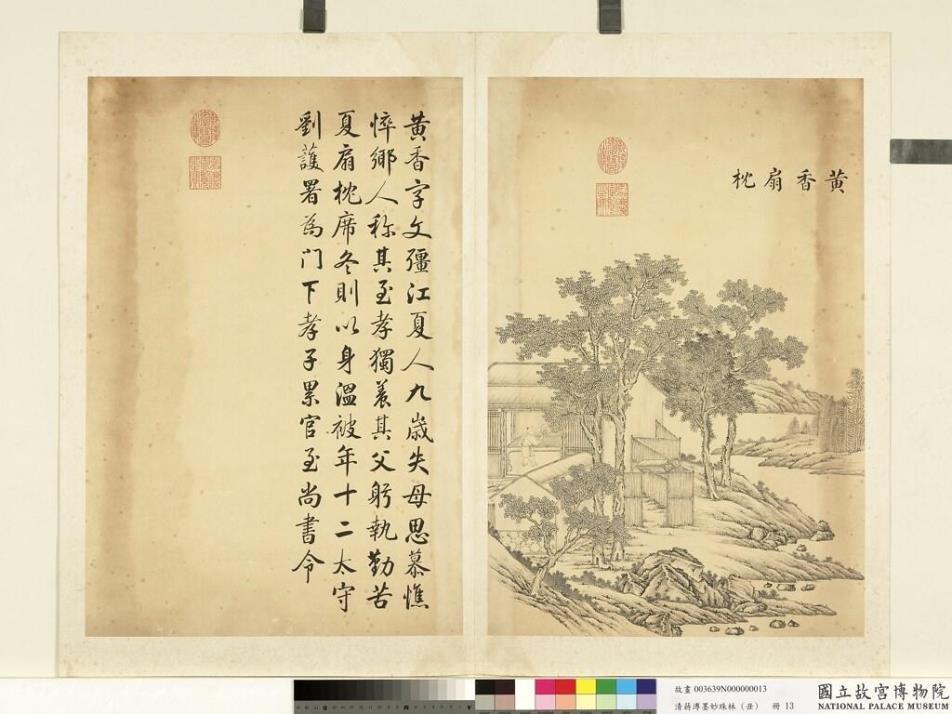 黃香扇枕
黃香字文彊江夏人九歲失母思慕憔
悴鄉人称其至孝獨養其父躬執勤苦
夏扇枕席冬則以身溫被年十二太守
劉護署為門下孝子累官至尚書令
故畫 003639N000000013
清蔣溥墨妙珠林(丑) 冊 13
國立故宮博物院
NATIONAL PALACE MUSEUM